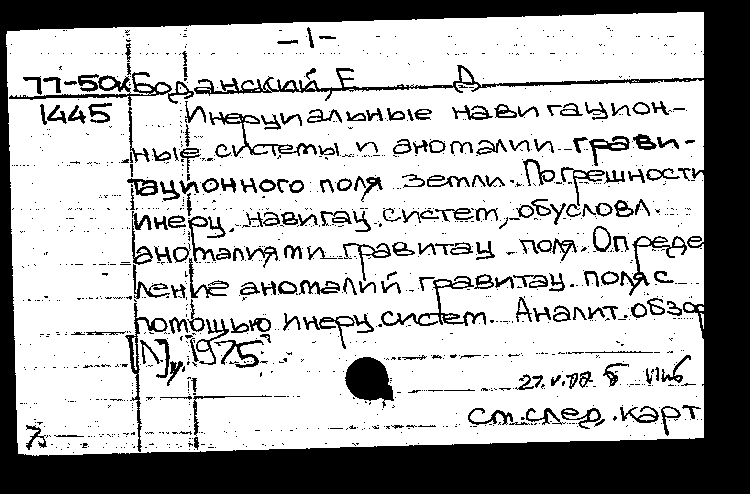 -1-
77-50к Боданский, Е Д
1445 Инерциальные навигацион-
ные системы и аномалии грави-
тационного поля Земли. Погрешности
инерц. навигац. систем, обусловл.
аномалиями гравитац поля. Опреде
ление аномалий гравитац. поля с
помощью инерц. систем. Аналит. обзор
[Л], 1975
см. след. карт